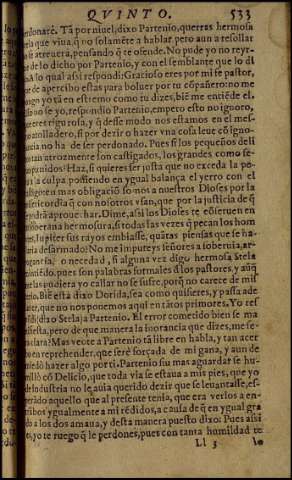 QVINTO. 533
donarè. Tâ por niuel, dixo Partenio, querras hermosa
que viua, q̃ o solamẽte a hablar pero aun a resollar
se atreuera, pensando q̃ te ofende. No pude yo no reyr
de lo dicho por Partenio, y con el semblante que lo di
lo qual assi respondi: Gracioso eres por mi fe pastor,
de apercibo estas para boluer por tu cõpañero: no me
ngo yo tã en estremo como tu dizes, biẽ me entiẽde el.
no se yo, respondio Partenio, empero esto no ignoro,
eres rigurosa, y q̃ desse modo nos estamos en el mes-
atolladero, si por dezir o hazer vna cosa leue cõ igno-
ncia no ha de ser perdonado. Pues si los pequeños deli
tan atrozmente son castigados, los grandes como se-
punidos? Haz, si quieres ser justa que no exceda la po-
la culpa possiendo en ygual balança el yerro con el
castigo: si mas obligaciõ somos a nuestros Dioses por la
misericordia q̃ con nosotros vsan, que por la justicia de q̃
aprouechar. Dime, assi los Dioses te
hermosura, si todas las vezes q̃ pecan los hom
Iupiter sus rayos embiasse, quãtas piensas que se ha-
desarmado? No me imputeys señores a soberuia, ar-
o necedad, si alguna vez digo hermosa Stela
pues son palabras formales d̃ los pastores, y aũq̃
las pudiera yo callar no se sufre, porq̃ no carece de mis
Biẽ está dixo Dorida, sea como quisieres, y passa ade
que no nos ponemos aqui en tãtos primores. Yo res
dixo Stela a Partenio. El error cometido bien se ma
pero de que manera la inorancia que dizes, me se-
clara? Mas veote a Partenio tã libre en habla, y tan acer
en reprehender, que serè forçada de mi gana, y aun de
miedo hazer algo por ti. Partenio sin mas aguardar se hu-
millò cõ Delicio, que toda via se estaua a mis pies, que yo
de industria no le auia querido dezir que se leuantasse, es-
aquello que al presente tenia, que era verlos a en-
ygualmente a mi rẽdidos, a causa de q̃ en ygual gra
a los dos amaua, y desta manera puesto dixo: Pues assi
yo te ruego q̃ le perdones, pues con tanta humildad te
Ll 3 lo